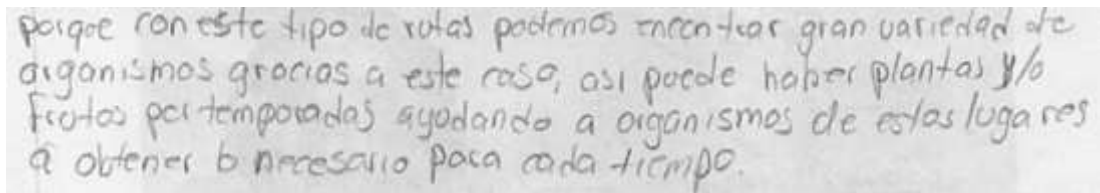 porque con este tipo de rutas podemos encontrar gran variedad de
organismos gracias a este caso, asi puede haber plantas y/o
frutos por temporadas ayudando a organismos de estos lugares
a obtener lo necesario para cada tiempo.